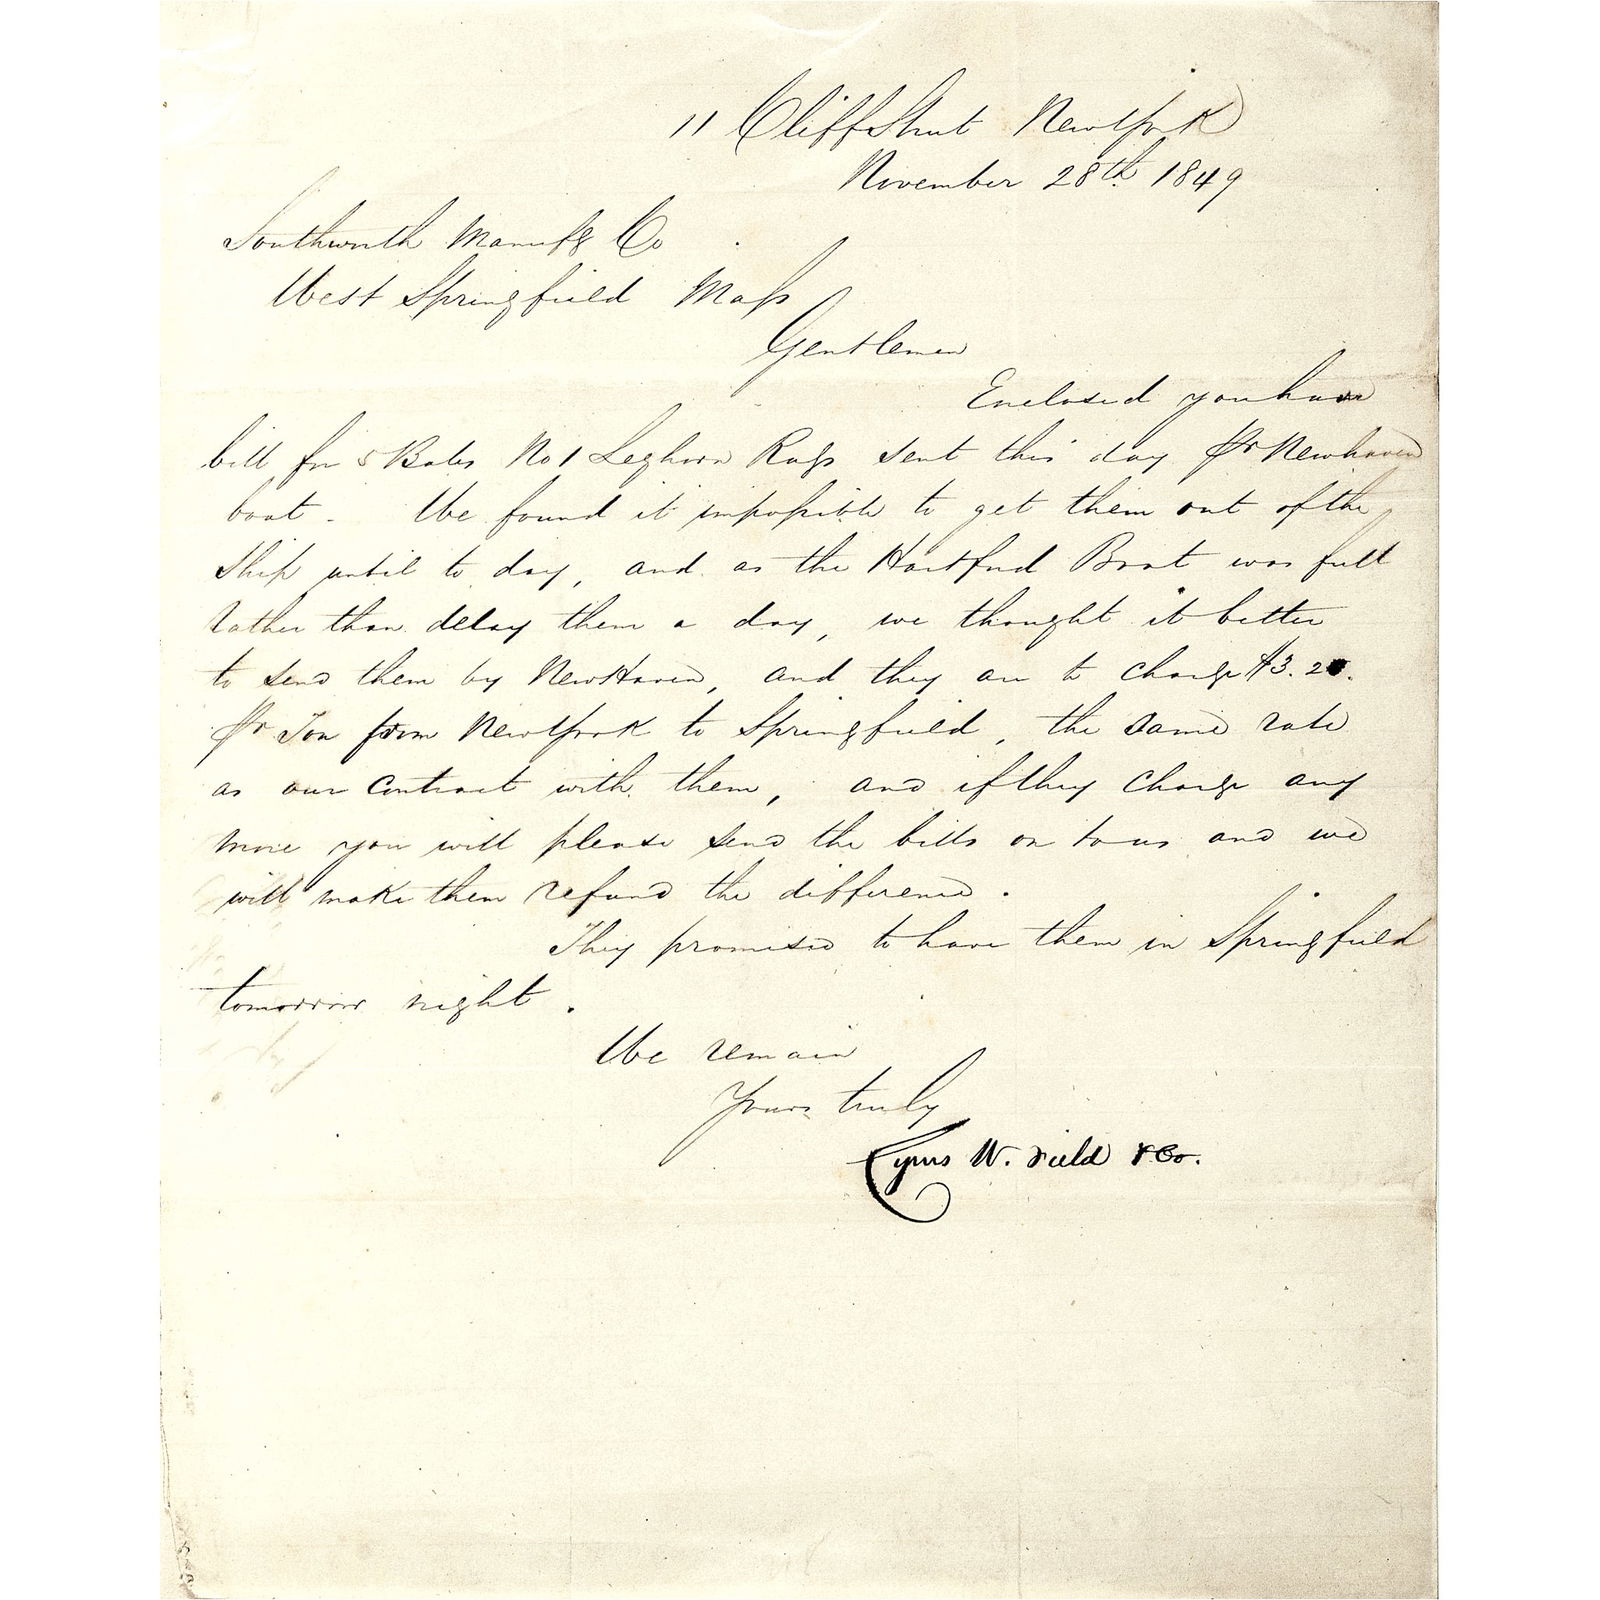 11 Cliff Street New York
November 28th 1849
Southworth Manufg Co
West Springfield Mass
Gentlemen
Enclosed you have
bill for 5 Bales No 1 Leghorn Rags sent this day pr Newhaven
boat. We found it impossible to get them out of the
Ship until to day, and as the Hartford Boat was full
rather than delay them a day, we thought it better
to send them by New Haven, and they are to charge $3.20.
pr Ton from New York to Springfield, the same rate
as our contract with them, and if they charge any
more you will please send the bills on to us and we
will make them refund the difference.
They promised to have them in Springfield
tomorrow night.
We remain
Yours truly
Cyrus W. Field & Co.